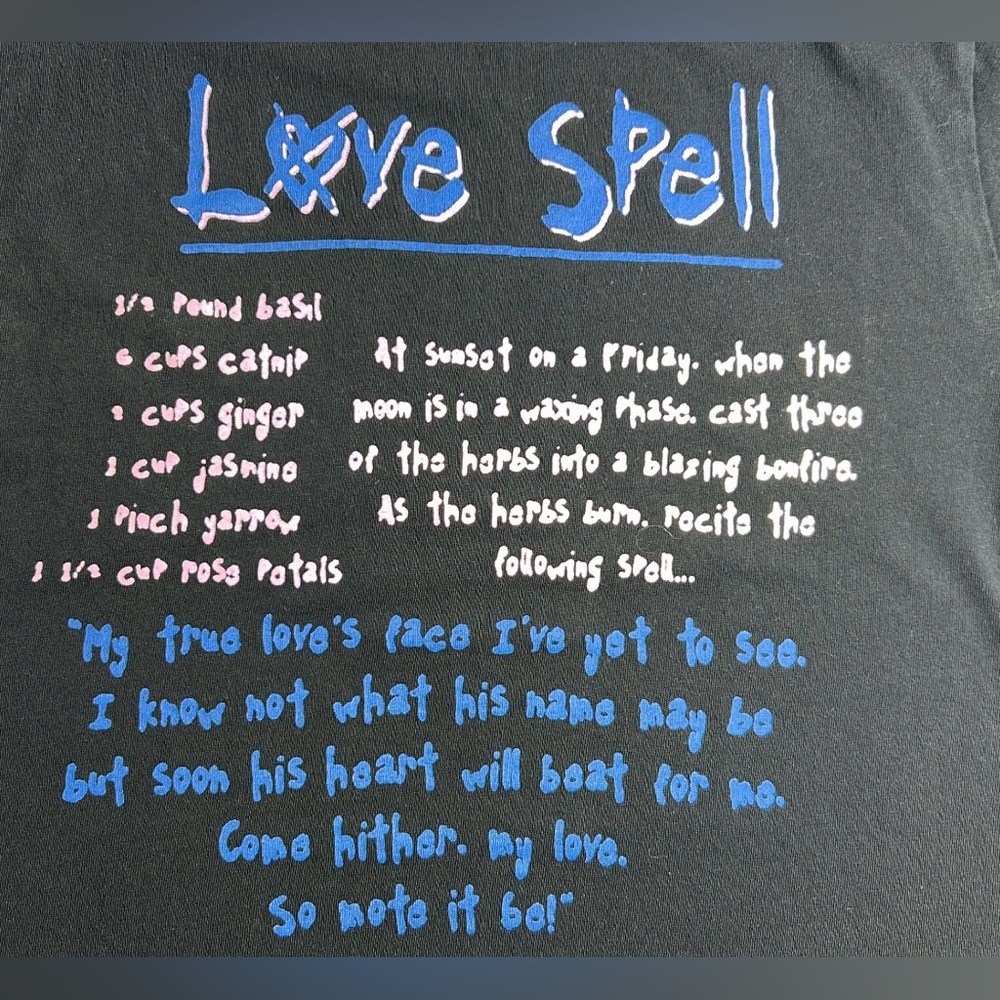 Love Spell
1/2 Pound basil
6 cups catnip
2 cups ginger
1 cup jasmine
1 Pinch yarrow
1 1/2 cup rose Petals
At sunset on a Friday. when the
moon is in a waxing Phase. cast three
of the herbs into a blazing bonfire.
As the herbs burn. recite the
following spell...
"My true love's face I've yet to see.
I know not what his name may be
but soon his heart will beat for me.
Come hither. my love.
So mote it be!"